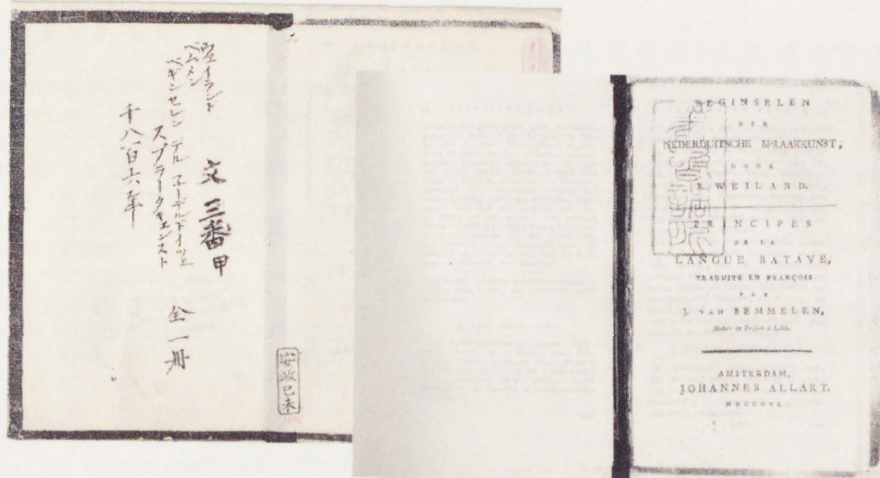 文 三番 甲
ウェイランド
ベムメン
ベギンセレン デル ネーデルドイツセ
スプラークキュンスト
全一冊
千八百六年
安政己未
BEGINSELEN
DER
NEDERDUITSCHE SPRAAKKUNST,
DOOR
P. WEILAND.
PRINCIPES
DE LA
LANGUE BATAVE,
TRADUITS EN FRANÇOIS
PAR
J. VAN BEMMELEN,
AMSTERDAM,
JOHANNES ALLART.
MDCCCVI.